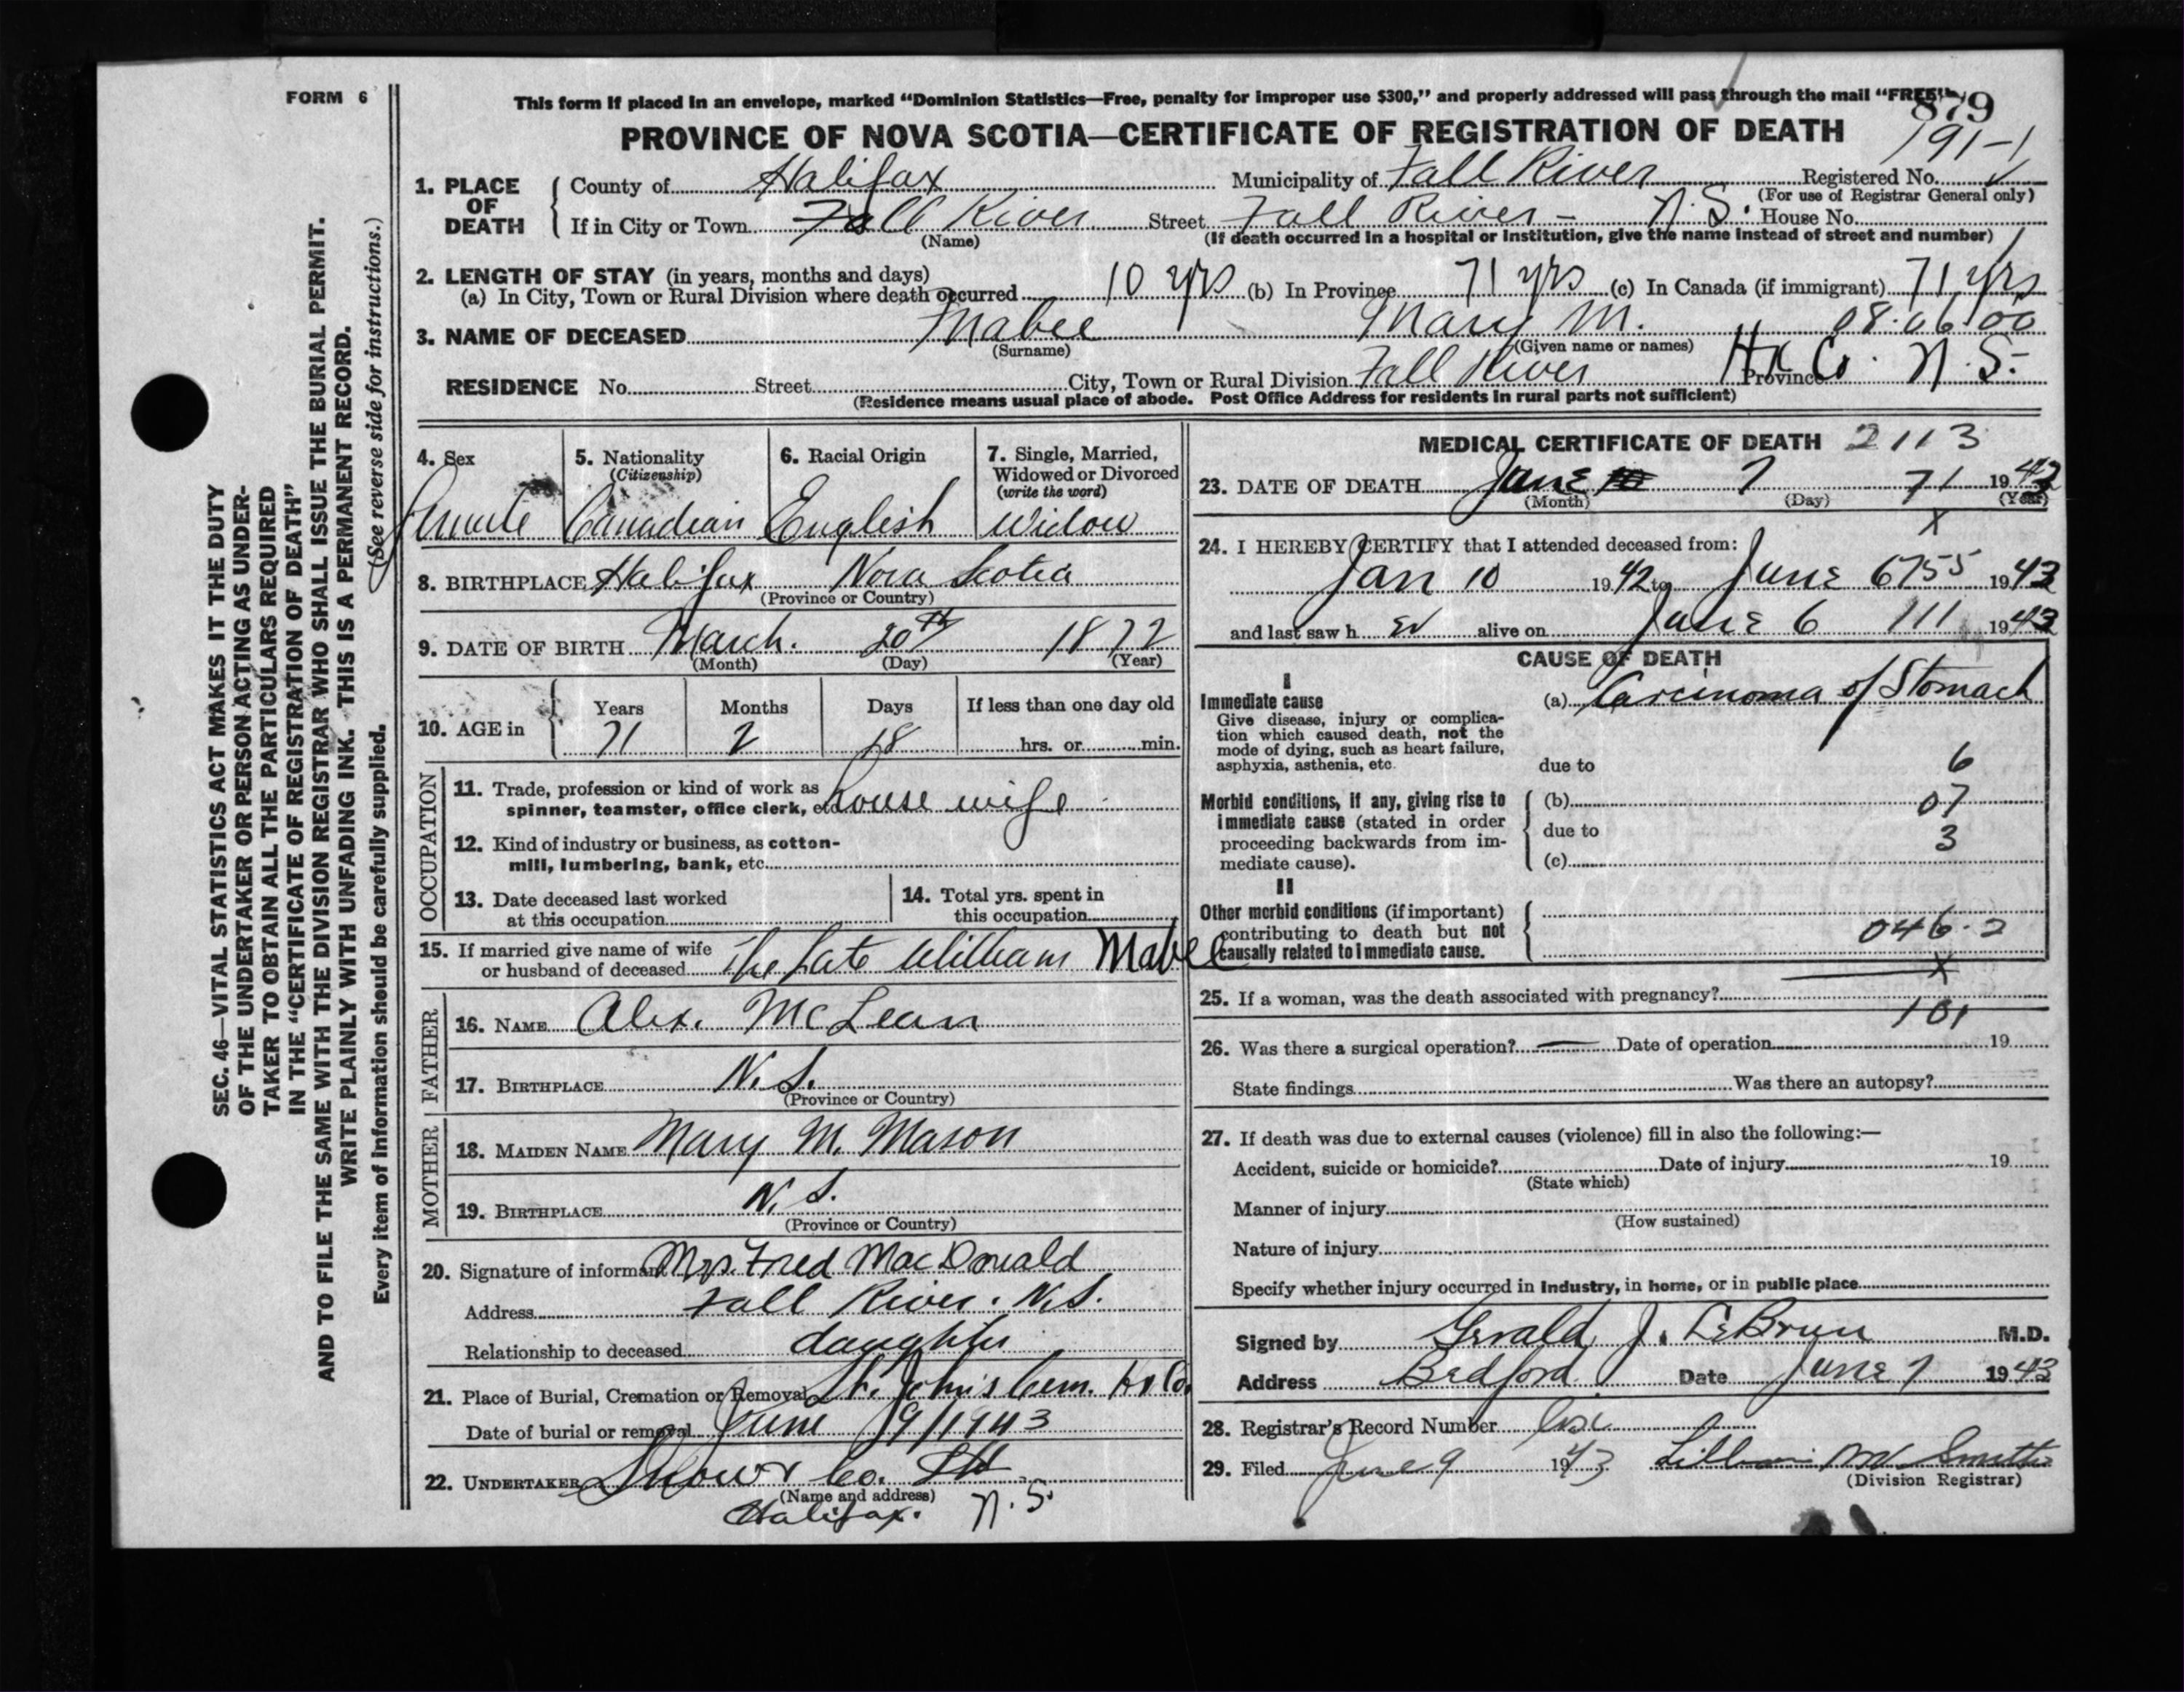 FORM 6
This form if placed in an envelope, marked “Dominion Statistics—Free, penalty for improper use $300,” and properly addressed will pass through the mail “FREE”.
879
PROVINCE OF NOVA SCOTIA—CERTIFICATE OF REGISTRATION OF DEATH
191-1
1. PLACE OF DEATH { County of Halifax Municipality of Fall River Registered No.
(For use of Registrar General only)
If in City or Town Fall River Street Fall River - N.S. House No.
(Name) (If death occurred in a hospital or institution, give the name instead of street and number)
2. LENGTH OF STAY (in years, months and days)
(a) In City, Town or Rural Division where death occurred 10 yrs (b) In Province 71 yrs (c) In Canada (if immigrant) 71 yrs
3. NAME OF DECEASED Mabee Mary M. 08.06.00
(Surname) (Given name or names)
RESIDENCE No. Street City, Town or Rural Division Fall River Hx Co. Province N.S.
(Residence means usual place of abode. Post Office Address for residents in rural parts not sufficient)
4. Sex 5. Nationality (Citizenship) 6. Racial Origin 7. Single, Married, Widowed or Divorced (write the word)
Canadian English Widow
8. BIRTHPLACE Halifax Nova Scotia
(Province or Country)
9. DATE OF BIRTH March. 20th 1872
(Month) (Day) (Year)
10. AGE in { Years Months Days If less than one day old
71 2 18 hrs. or min.
OCCUPATION
11. Trade, profession or kind of work as spinner, teamster, office clerk, etc. house wife
12. Kind of industry or business, as cotton-mill, lumbering, bank, etc.
13. Date deceased last worked at this occupation
14. Total yrs. spent in this occupation
15. If married give name of wife or husband of deceased The Late William Mabee
FATHER
16. NAME Alex. McLean
17. BIRTHPLACE N.S.
(Province or Country)
MOTHER
18. MAIDEN NAME Mary M. Mason
19. BIRTHPLACE N.S.
(Province or Country)
20. Signature of informant Mrs Fred MacDonald
Address Fall River. N.S.
Relationship to deceased daughter
21. Place of Burial, Cremation or Removal St. John's Cem. Hx Co.
Date of burial or removal June 9/1943
22. UNDERTAKER Snow & Co. Ltd
(Name and address)
Halifax. N.S.
MEDICAL CERTIFICATE OF DEATH 2113
23. DATE OF DEATH June 7 71 1943
(Month) (Day) (Year)
X
24. I HEREBY CERTIFY that I attended deceased from:
Jan 10 1942 to June 6 755 1943
and last saw h er alive on June 6 111 1943
CAUSE OF DEATH
I
Immediate cause (a) Carcinoma of Stomach
Give disease, injury or complication which caused death, not the mode of dying, such as heart failure, asphyxia, asthenia, etc.
due to 6
Morbid conditions, if any, giving rise to immediate cause (stated in order proceeding backwards from immediate cause).
(b) 07
due to 3
(c)
II
Other morbid conditions (if important) contributing to death but not causally related to immediate cause.
046.2
X
25. If a woman, was the death associated with pregnancy?
101
26. Was there a surgical operation? — Date of operation 19
State findings Was there an autopsy?
27. If death was due to external causes (violence) fill in also the following:—
Accident, suicide or homicide? Date of injury 19
(State which)
Manner of injury
(How sustained)
Nature of injury
Specify whether injury occurred in industry, in home, or in public place
Signed by Gerald J. LeBrun M.D.
Address Bedford Date June 7 1943
28. Registrar's Record Number
29. Filed June 9 1943 Lillian M. Smith
(Division Registrar)
SEC. 46—VITAL STATISTICS ACT MAKES IT THE DUTY
OF THE UNDERTAKER OR PERSON ACTING AS UNDER-
TAKER TO OBTAIN ALL THE PARTICULARS REQUIRED
IN THE “CERTIFICATE OF REGISTRATION OF DEATH”
AND TO FILE THE SAME WITH THE DIVISION REGISTRAR WHO SHALL ISSUE THE BURIAL PERMIT.
WRITE PLAINLY WITH UNFADING INK. THIS IS A PERMANENT RECORD.
Every item of information should be carefully supplied. (See reverse side for instructions.)